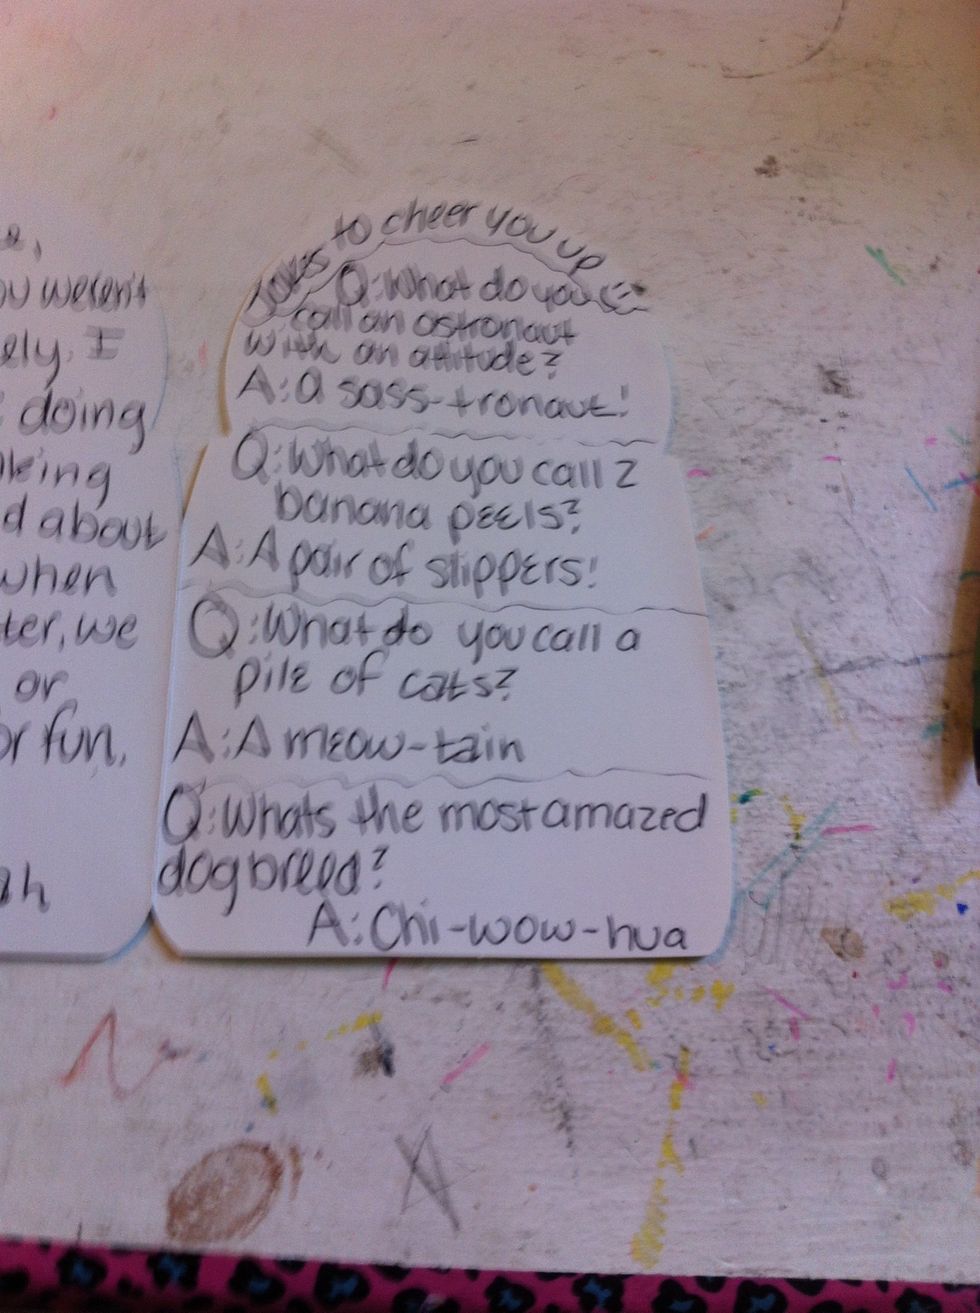 e,
ou weren't
ely. I
doing
lking
d about
when
ter, we
or
or fun.
ah
Jokes to cheer you up
Q: What do you
call an astronaut
with an attitude?
A: a sass-tronaut!
Q: What do you call 2
banana peels?
A: A pair of slippers!
Q: What do you call a
pile of cats?
A: A meow-tain
Q: Whats the most amazed
dog breed?
A: Chi-wow-hua